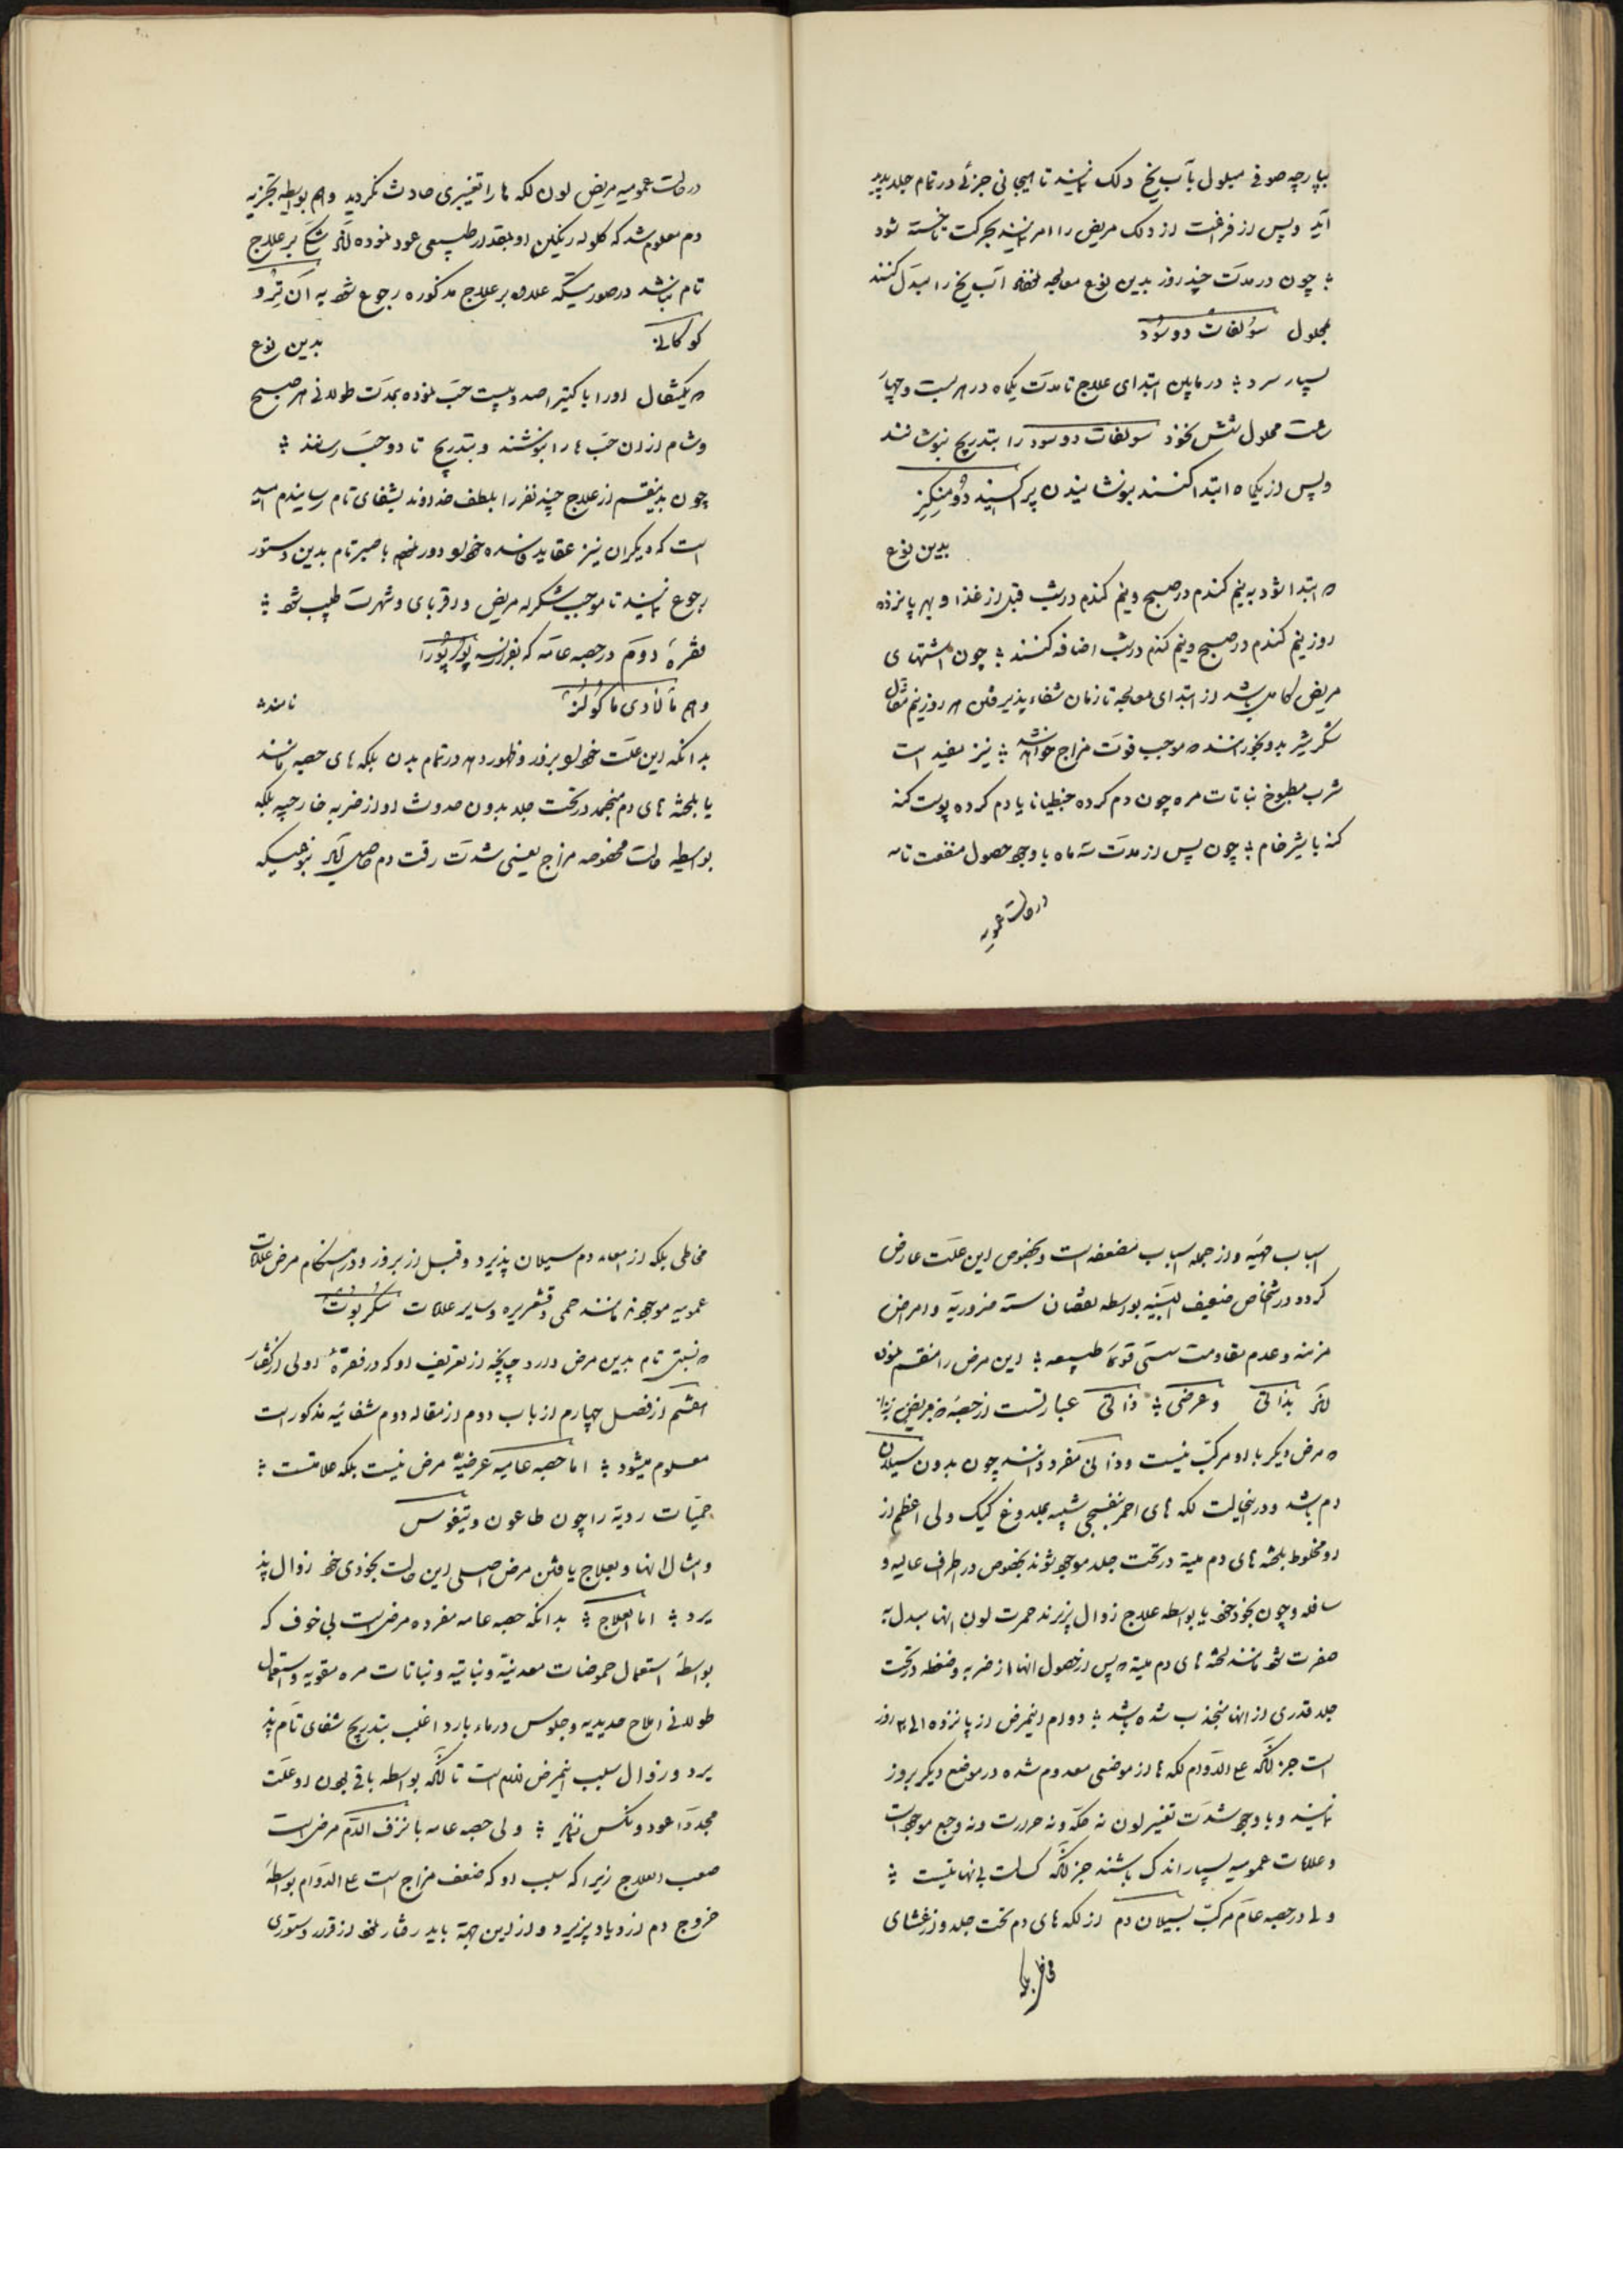 بپارچه صوفی مبلول بآب یخ دلک نمایند تا هیجانی جزئی در تمام جلد پدید
آید و پس از فراغت از دلک مریض را امر نمایند بحرکت تا خسته شود
چون در مدت چند روز بدین نوع معالجه آب یخ را مبدل کنند
بمحلول سولفات دو سود
بسیار سرد در مابین ابتدای علاج تا مدت یکماه در هر بیست و چهار
ساعت محلول شش نخود سولفات دو سود را بتدریج بنوشانند
و پس از یکماه ابتدا کنند بنوشانیدن پراکسید دو منگنز
بدین نوع
که ابتدا شود به نیم گندم در صبح و نیم گندم در شب قبل از غذا و بهر پانزده
روز نیم گندم در صبح و نیم گندم در شب اضافه کنند چون اشتهای
مریض کامل باشد از ابتدای معالجه تا زمان شفاء پذیرفتن هر روز نیم مثقال
شکر شیر بدو بخورانند که موجب قوت مزاج خواهد شد نیز مفید است
شرب مطبوخ نباتات مره چون دم کرده جنطیانا یا دم کرده پوست کنه
کنه با شیر خام چون پس از مدت سه ماه با وجود حصول منفعت تامه
در حالت عمومیه
در حالت عمومیه مریض لون لکه ها را تغییری حادث نگردید و هم بواسطه تجزیه
دم معلوم شد که کلوله رنگین او بمقدار طبیعی عود نموده لکن بر علاج
تام نباشد در صورتیکه علاوه بر علاج مذکوره رجوع شود به اکن ترو
کوکالن بدین نوع
که یکمثقال او را با کتیرا صد و بیست حب نموده بمدت طولانی هر صبح
و شام از آن حب ها را بنوشند و بتدریج تا دو حب رسانند
چون بدینقسم از علاج چند نفر را بلطف خداوند بشفای تام رسانیدم امید
است که دیگران نیز عقاید فاسده خود را دور نموده با صبر تام بدین دستور
رجوع نمایند تا موجب تشکر مریض و اقربای و شهرت طبیب شود
فقره دوم در حصبه عامه که بفرانسه پورپورا
و هم مالادی ماکولز نامند
بدانکه این علت خود را بروز و ظهور دهد در تمام بدن بلکه های حصبه مانند
یا بلخته های دم منجمد در تحت جلد بدون حدوث او از ضربه خارجیه بلکه
بواسطه حالت مخصوصه مزاج یعنی شدت رقت دم حاصل آید بنوعیکه
اسباب مهیئه و از جمله اسباب مضعفه است و بخصوص این علت عارض
گردد در اشخاص ضعیف البنیه بواسطه نقصان سته ضروریه و امراض
مزمنه و عدم مقاومت قوه طبیعیه این مرض را منقسم نموده
اند بذاتی و عرضی ذاتی عبارتست از حصبه
که مرض دیگر با او مرکب نیست و ذاتی مفرد دانند چون بدون سیلان
دم باشد و در اینحالت لکه های احمر بنفسجی شبیه بلدوغ کیک ولی اعظم از
او مخلوط بلخته های دم میته در تحت جلد موجود شوند بخصوص در اطراف عالیه و
سافله و چون بخودی خود یا بواسطه علاج زوال پذیرند حمرت لون آنها مبدل به
صفرت شود مانند لخته های دم میته که پس از حصول آنها از ضربه و ضغطه در تحت
جلد قدری از آنها منجذب شده باشد دوام اینمرض از پانزده الی ۳۰ روز
است جز آنکه علی الدوام لکه ها از موضعی معدوم شده در موضع دیگر بروز
نمایند و با وجود شدت تغییر لون نه حکه و نه حرارت و نه وجع موجود است
و علامات عمومیه بسیار اندک باشند جز آنکه کسالت بی نهایتست
ولی در حصبه عام مرکب بسیلان دم از لکه های دم تحت جلد و از غشای
مخاطی بلکه
مخاطی بلکه از امعاء دم سیلان پذیرد و قبل از بروز و در هنگام مرض علامات
عمومیه موجودند مانند حمی و قشعریره و سایر علامات سکربوت
که نسبتی تام بدین مرض دارد چنانچه از تعریف او که در فقره اولی از گفتار
هشتم از فصل چهارم از باب دوم از مقاله دوم شفائیه مذکور است
معلوم میشود اما حصبه عامیه عرضیه مرض نیست بلکه علامتست
حمیات ردیه را چون طاعون و تیفوس
و امثال آنها و بعلاج یافتن مرض اصلی این حالت بخودی خود زوال پذ
یرد اما العلاج بدانکه حصبه عامه مفرده مرضی است بی خوف که
بواسطه استعمال حموضات معدنیه و نباتیه و نباتات مره مقویه و استعمال
طولانی املاح حدیدیه و جلوس در ماء بارد اغلب بتدریج شفای تام پذ
یرد و زوال سبب اینمرض لازم است تا آنکه بواسطه باقی بودن او علت
مجددا عود و نکس ننماید ولی حصبه عامه با نزف الدم مرضی است
صعب العلاج زیرا که سبب او که ضعف مزاج است علی الدوام بواسطه
خروج دم ازدیاد پذیرد و از این جهة باید رفتار نمود از قرار دستوری